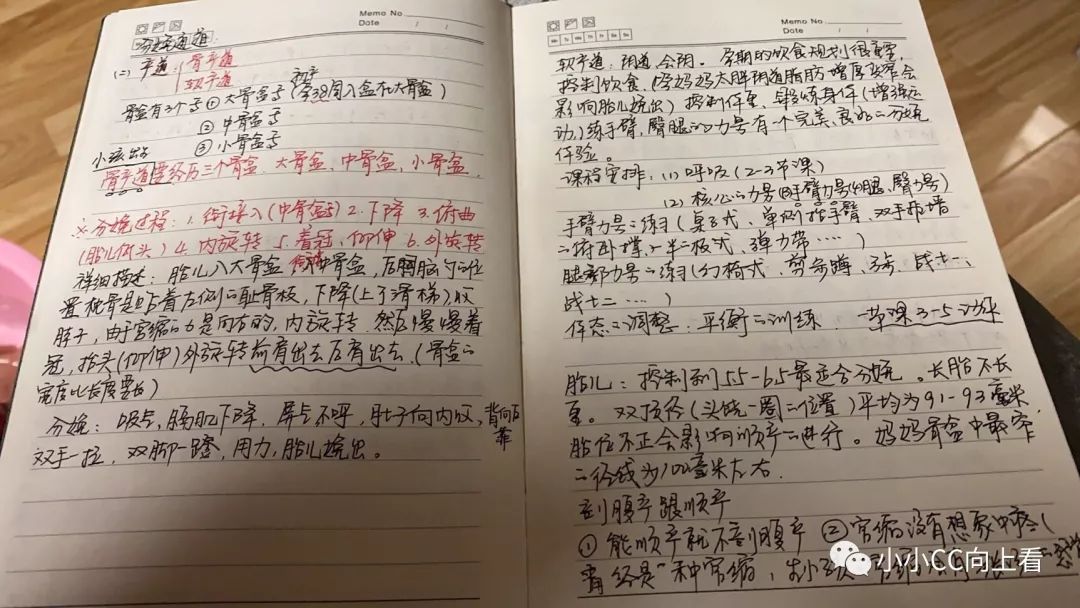 Memo No.
Date / /
分娩通道:
(二) 产道: 骨产道
软产道
初产
骨盆有3个号 ① 大骨盆号 (孕38周入盆在大骨盆)
② 中骨盆号
小孩出的 ③ 小骨盆号
骨产道要经历三个骨盆. 大骨盆, 中骨盆, 小骨盆,
※分娩过程: 1. 衔接入(中骨盆号) 2. 下降 3. 俯曲
(胎儿低头) 4. 内旋转 5. 着冠, 仰伸 6. 外旋转
详细描述: 胎儿入大骨盆 中骨盆, 后脑的位
置枕骨是贴着左侧的耻骨板, 下降(上了滑梯) 收
脖子, 由于宫缩的力是向右的, 内旋转, 然后慢慢着
冠, 抬头(仰伸) 外旋转 前肩出去后肩出去. (骨盆的
宽度比长度要)
分娩: 吸气, 膈肌下降, 屏气不呼, 肚子向内收, 背向后靠
双手一拉, 双脚一蹬, 用力, 胎儿娩出。
Memo No.
Date / /
Mo Tu We Th Fr Sa Su
软产道: 阴道、会阴。孕期的饮食规划很重要,
控制饮食, (孕妈妈太胖阴道脂肪增厚变窄会
影响胎儿娩出) 控制体重, 锻炼身体(增强运
动) 练手臂, 臀腿的力量有一个完美, 良好的分娩
体验。
课程安排: (1) 呼吸 (2-3节课)
(2) 核心的力量(手臂力量(腿、臀力量)
手臂力量的练习 (桌子式, 单侧抬手臂, 双手推墙
的俯卧撑, 半板式, 弹力带....)
腿部力量的练习 (幻椅式, 剪刀蹲, 战士一、
战士二 ... )
体态的调整, 平衡的训练, 一节课3-5个动作
胎儿: 控制到5.5-6.5最适合分娩。长胎不长
重。双顶径(头绕一圈的位置) 平均为91-93毫米,
胎位不正会影响顺产的进行。妈妈骨盆中最窄
的径线为100毫米左右.
剖腹产跟顺产
① 能顺产就不剖腹产 ② 宫缩没有想象中疼(
月经是一种宫缩,
小小CC向上看